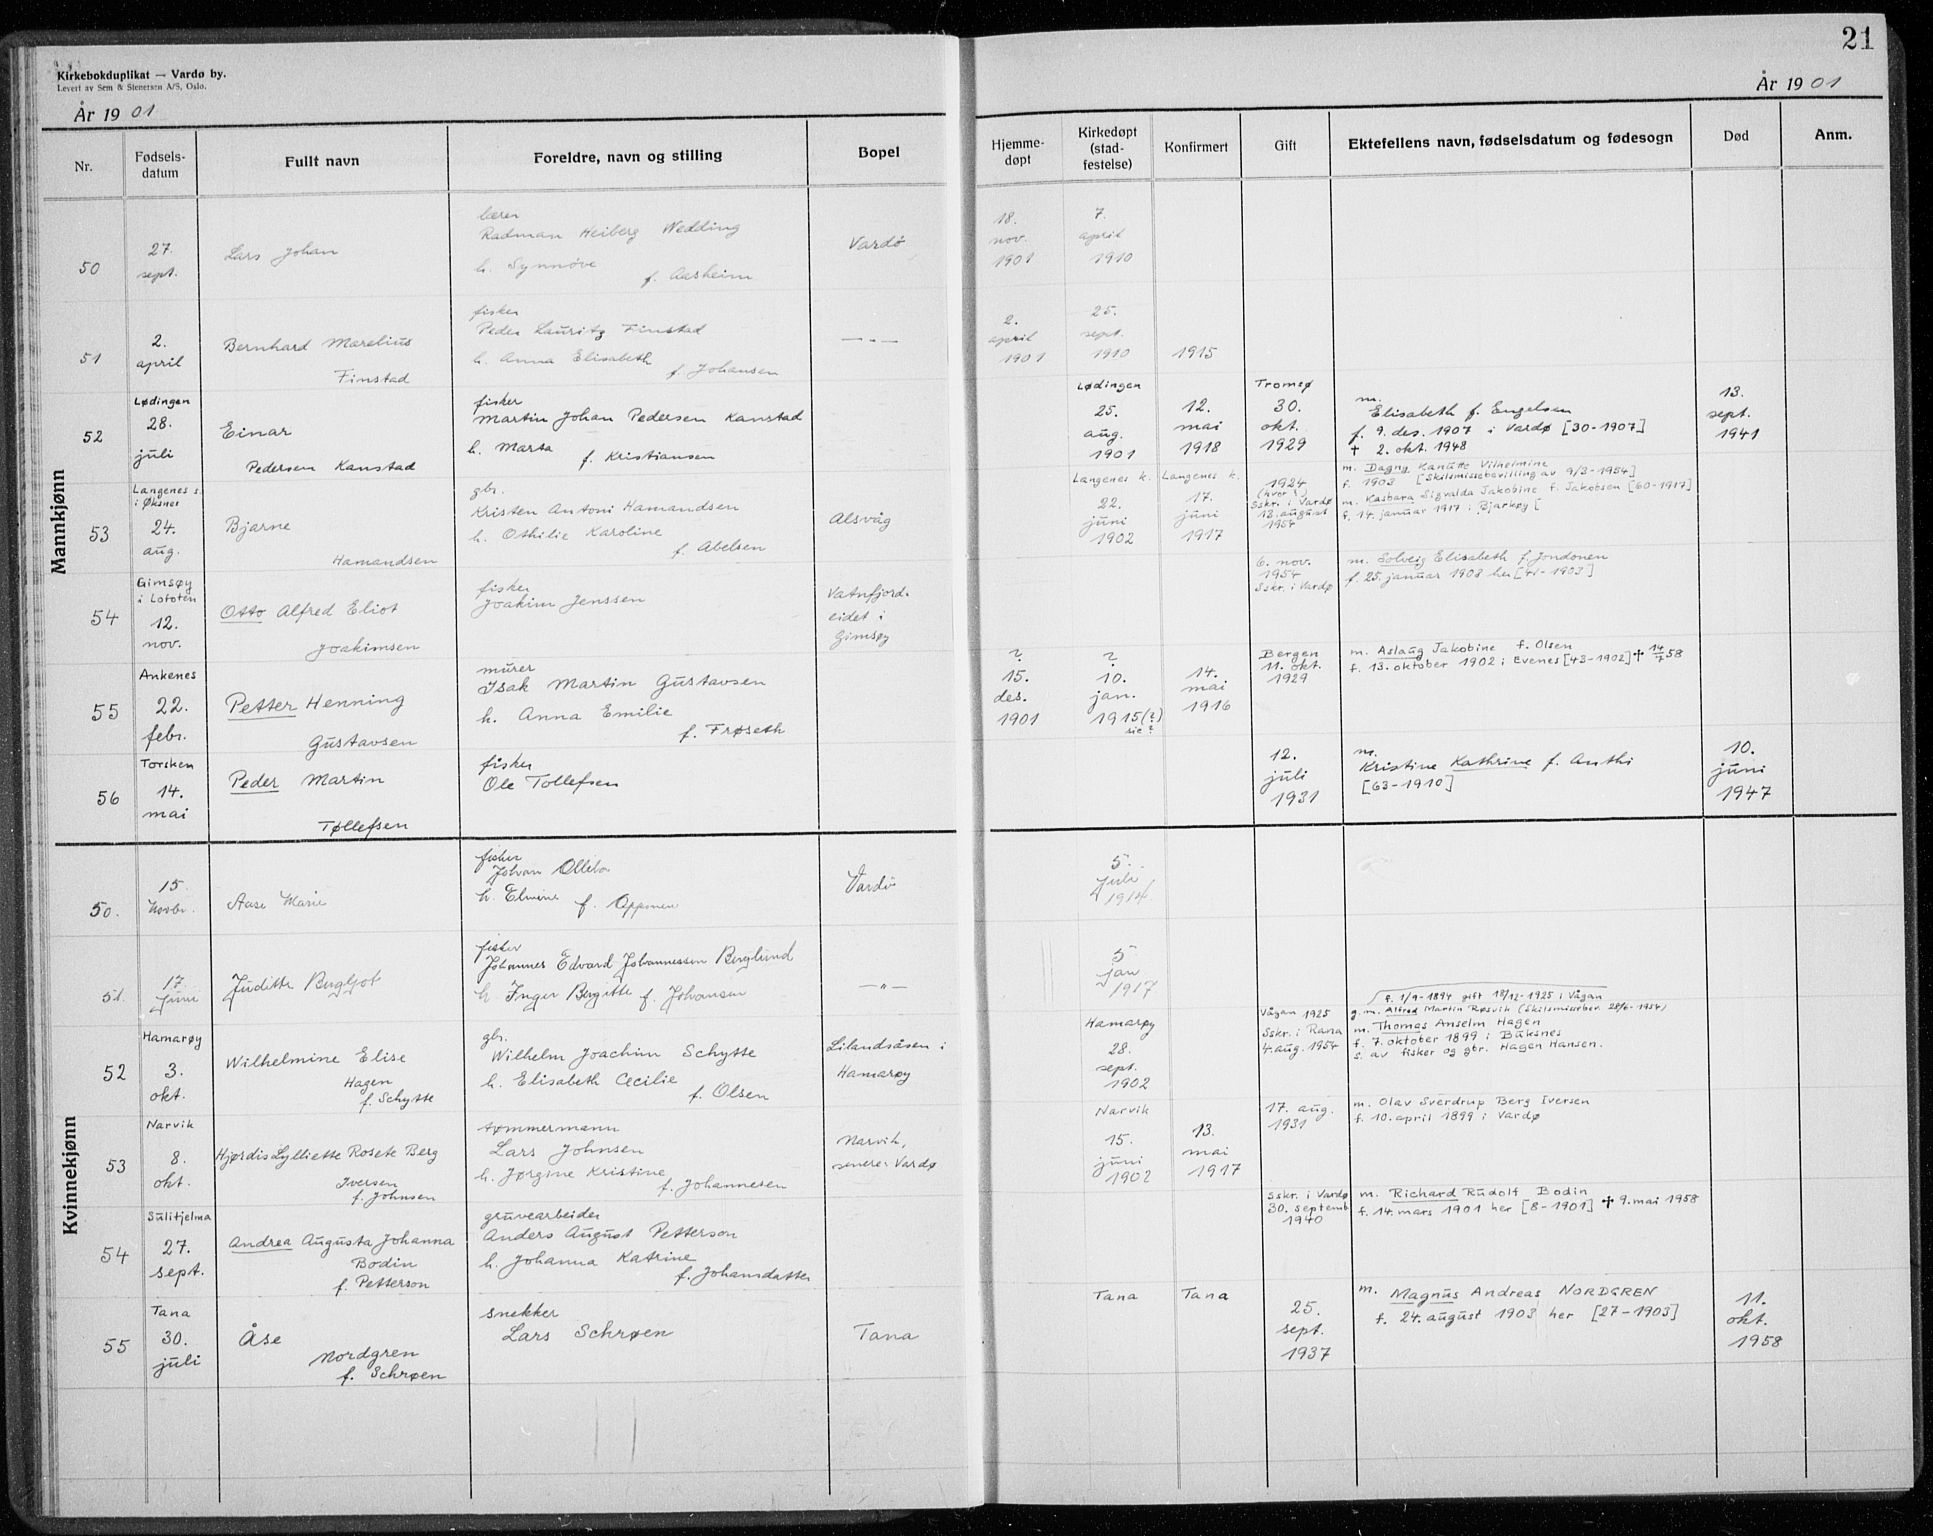 21
Kirkebokduplikat — Vardø by.
Levert av Sem & Stenersen A/S, Oslo.
År 1901
År 1901
Nr.
Fødsels-
datum
Fullt navn
Foreldre, navn og stilling
Bopel
Hjemme-
døpt
Kirkedøpt
(stad-
festelse)
Konfirmert
Gift
Ektefellens navn, fødselsdatum og fødesogn
Død
Anm.
Mannkjønn
50
27.
sept.
Lars Johan
lærer
Radman Heiberg Wedding
h. Synnøve f. Aasheim
Vardö
18.
nov.
1901
7.
april
1910
51
2.
april
Bernhard Marelius
Finstad
fisker
Peder Lauritz Finstad
h. Anna Elisabeth
f. Johansen
— " —
2.
april
1901
25.
sept.
1910
1915
52
Lødingen
28.
juli
Einar
Pedersen Kanstad
fisker
Martin Johan Pedersen Kanstad
h. Marta f. Kristiansen
Lødingen
25.
aug.
1901
12.
mai
1918
Tromsø
30.
okt.
1929
m.
Elisabeth f. Engelsen
f. 9. des. 1907 i Vardø [30-1907]
† 2. okt. 1948
13.
sept.
1941
53
Langenes s.
i Øksnes
24.
aug.
Bjarne
Hamandsen
gbr.
Kristen Antoni Hamandsen
h. Othilie Karoline
f. Abelsen
Alsvåg
Langenes k.
22.
juni
1902
Langenes k.
17.
juni
1917
1924
(hvor?)
Sskr. i Vardø
13. august
1954
m. Dagny Kanutte Vilhelmine
f. 1903 [Skilsmissebevilling av 9/3-1954]
m. Kasbara Sigvalda Jakobine f. Jakobsen [60-1917]
f. 14. januar 1917 i Bjarkøy [
54
Gimsøy
i Lofoten
12.
nov.
Otto Alfred Eliot
Joakimsen
fisker
Joakim Jenssen
Vatnfjord-
eidet i
Gimsøy
6. nov.
1954
Sskr. i Vardø
m. Solveig Elisabeth f. Jondonen
f. 25. januar 1903 her [41-1903]
55
Ankenes
22.
febr.
Petter Henning
Gustavsen
murer
Isak Martin Gustavsen
h. Anna Emilie
f. Frøseth
?
15.
des.
1901
?
10.
jan.
1915(?)
sic?
14.
mai
1916
Bergen
11. okt.
1929
m. Aslaug Jakobine f. Olsen
f. 13. oktober 1902 i Evenes [43-1902] † 14/7 58
56
Torsken
14.
mai
Peder Martin
Tøllefsen
fisker
Ole Tollefsen
12.
juli
1931
m.
Kristine Kathrine f. Anthi
[63-1910]
10.
juni
1947
Kvinnekjønn
50.
15
Novbr.
Aase Marie
fisker
Johan
h. Elmine f.
Vardö
5.
Juli
1914
51.
17.
Juni
Juditte Bergljot
fisker
Johannes Edvard Johannessen Berglund
h. Inger Bergitte f. Johansen
— " —
5
jan
1917
52
Hamarøy
3.
okt.
Wilhelmine Elise
Hagen
f. Schytte
gbr.
Wilhelm Joachim Schytte
h. Elisabeth Cecilie
f. Olsen
Lilandsåsen i
Hamarøy
Hamarøy
28.
sept.
1902
Vågan 1925
Sskr. i Rana
4. aug. 1954
f. 1/9-1894 gift 18/12-1925 i Vågan
g. m. Alfred Martin Røsvik (Skilsmisseber. 28/6-1954)
m. Thomas Anselm Hagen
f. 7. oktober 1899 i Buksnes
s. av fisker og gbr. Hagen Hansen.
53
Narvik
8.
okt.
Hjørdis Lylliette Rosete Berg
Iversen
f. Johnsen
tømmermann
Lars Johnsen
h. Jørgine Kristine
f. Johannesen
Narvik,
senere: Vardø
Narvik
15.
juni
1902
13.
mai
1917
17. aug.
1931
m. Olav Sverdrup Berg Iversen
f. 10. april 1899 i Vardø
54
Sulitjelma
27.
sept.
Andrea Augusta Johanna
Bodin
f. Petterson
gruvearbeider
Anders August Petterson
h. Johanna Katrine
f. Johansdatter
Sskr. i Vardø
30. septemb.
1940
m. Richard Rudolf Bodin
f. 14. mars 1901 her [8-1901] † 9. mai 1958
55
Tana
30.
juli
Åse
Nordgren
f. Schrøen
snekker
Lars Schrøen
Tana
Tana
Tana
25.
sept.
1937
m. Magnus Andreas NORDGREN
f. 24. august 1903 her [27-1903]
11.
okt.
1958